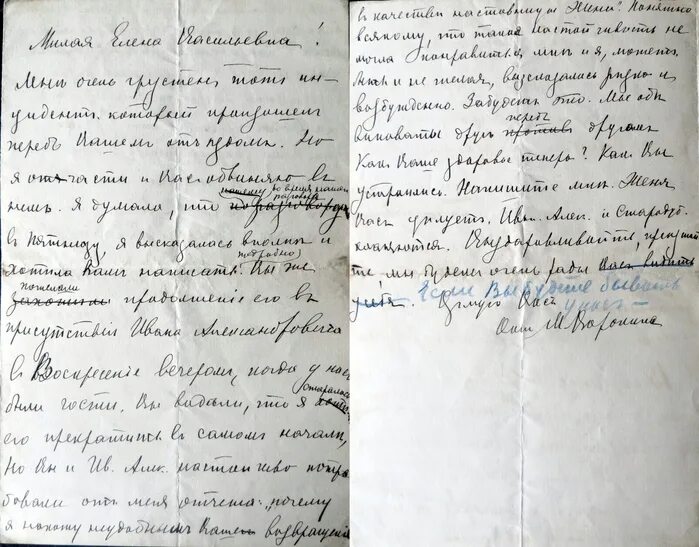 Милая Елена Васильевна!
Мнѣ очень грустенъ тотъ ин-
цидентъ, который произошелъ
передъ Вашемъ отъѣздомъ. Но
я отчасти и Васъ обвиняю въ
немъ. Я думала, что во время нашего
въ пятницу я высказалась вполнѣ и
хотѣла Вамъ написать (подробно) Вы же
пожелали продолженіе его въ
присутствіи Ивана Александровича
въ Воскресеніе вечеромъ, когда у насъ
были гости. Вы видѣли, что я старалась
его прекратить въ самомъ началѣ,
Но Вы и Ив. Алек. настойчиво потре-
бовали отъ меня отчета: „почему
я нахожу неудобнымъ Ваше возвращеніе
въ качествѣ наставницы Жени? Понятно
всякому, что такая настойчивость не
могла понравиться мнѣ и я, можетъ
быть и не желая, высказалась рѣзко и
возбужденно. Забудемъ это. Мы обѣ
виноваты другъ передъ другомъ
Какъ Ваше здоровье теперь? Какъ Вы
устроились. Напишите мнѣ. Женя
Васъ цѣлуетъ. Ив. Алек. и
кланяются. Выздоравливайте,
те мы будемъ очень рады Васъ видѣть
Если Вы будете бывать
у насъ —
Цѣлую Васъ
М. Воронина